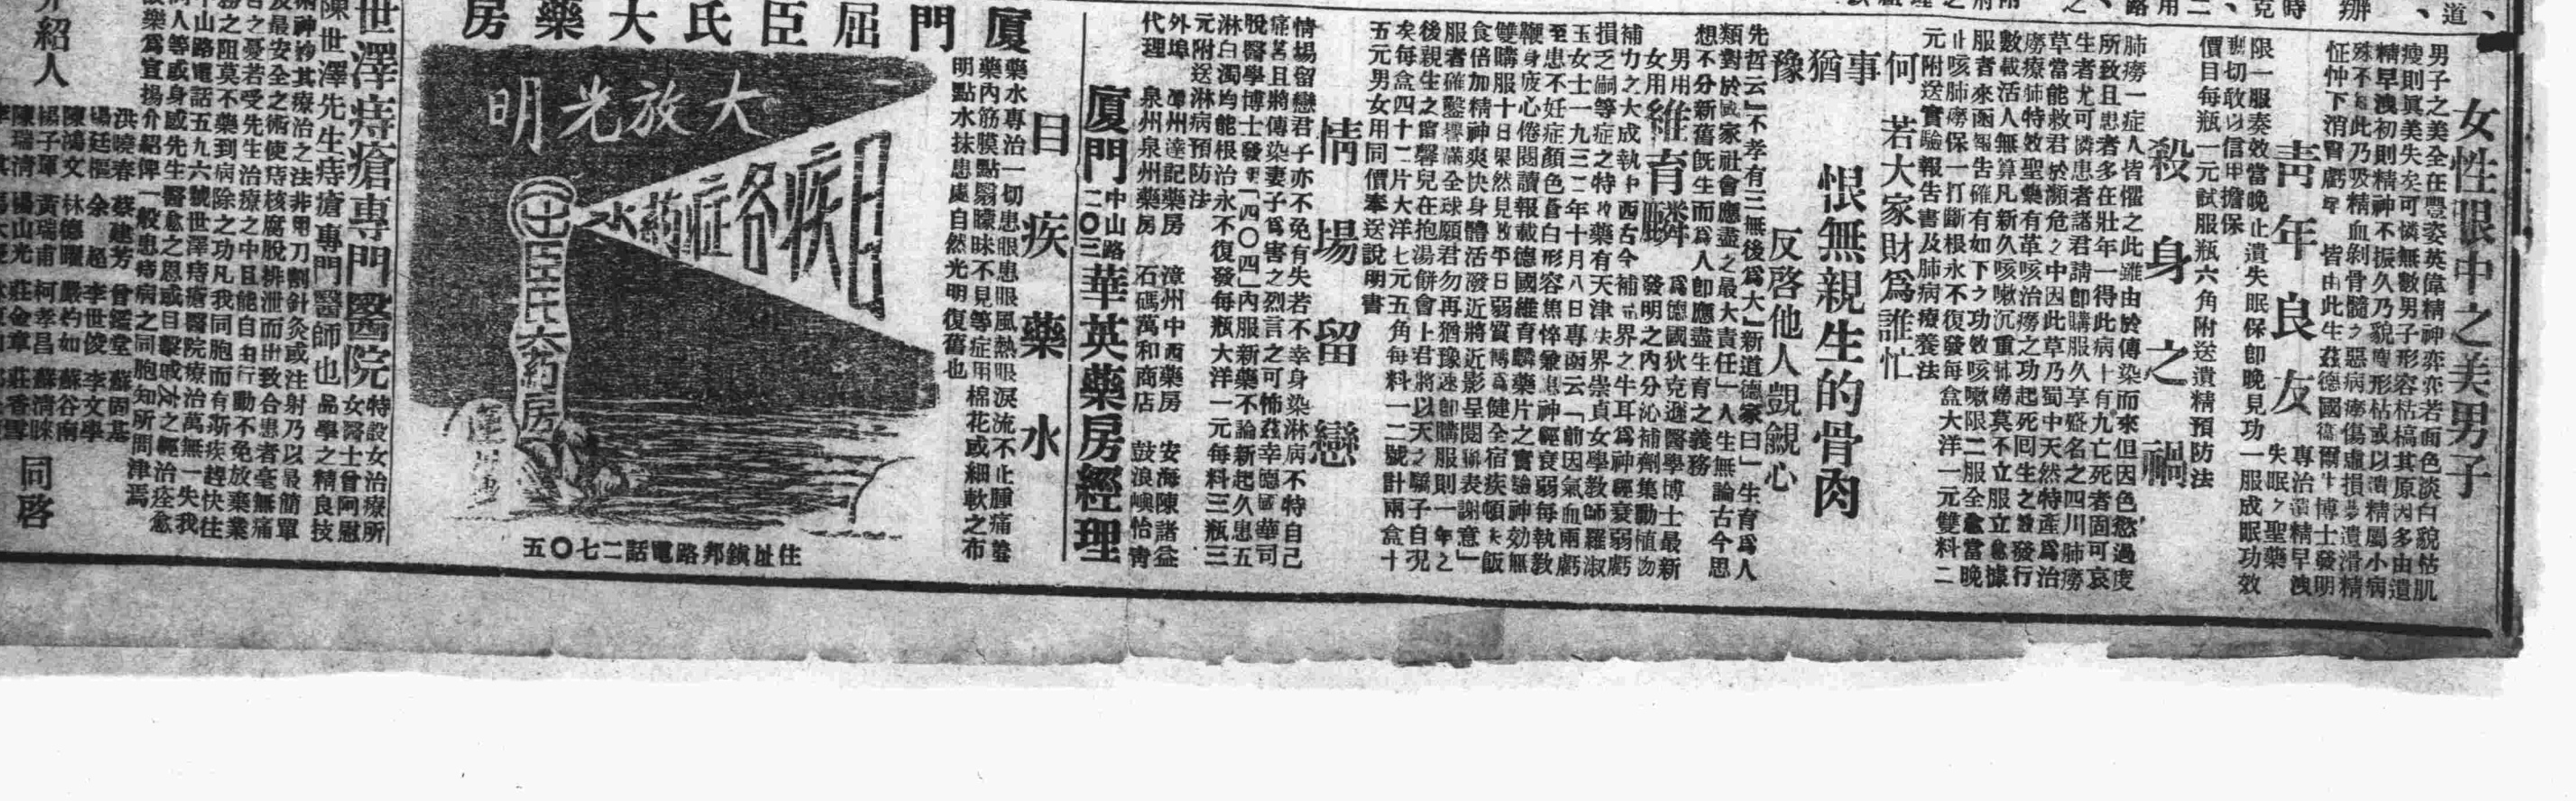 女性眼中之美男子
男子之美全在豐姿英偉精神弈弈若面色淡白貌枯肌
瘦則眞美失矣可憐無數男子形容枯槁其原因多由遺
精早洩初則精神不振久乃貌癯形枯或以潰精屬小病
殊不此乃吸精血剝骨髓之惡病癆傷虛損夢遺滑精
怔忡下消腎虧皆由此生茲德國博士發明
青年良友
專治遺精早洩
失眠之聖藥
限一服奏效當晚止遺失眠保卽晚見功一服成眠功效
切敢以信甲擔保
價目每瓶一元試服瓶六角附送遺精預防法
殺身之禍
肺癆一症人皆懼之此雖由於傳染而來但因色慾過度
所致且患者多在壯年一得此病十有九亡死者固可哀
生者尤可憐患者諸君請卽購服久享盛名之四川肺癆
草當能救君於瀕危之中因此草乃蜀中天然特產爲治
癆療肺特效聖藥有革咳治癆之功起死囘生之發行
數載活人無算凡新久咳嗽沉重肺癆莫不立服立愈據
服者來函報告確有如下之功效咳嗽限二服全愈當晚
止咳肺癆保一打斷根永不復發每盒大洋一元雙料二
元附送實驗報告書及肺病療養法
何若大家財爲誰忙
事猶豫
恨無親生的骨肉
反啓他人覬覦心
先哲云『不孝有三無後爲大』新道德家曰』生育爲人
類對於國家社會應盡之最大責任』人生無論古今思
想不分新舊旣生而爲人卽應盡生育之義務
男用
女用
維育麟
爲德國狄克遜醫學博士最新
發明之內分沁補劑集動植物
補力之大成執中西古今補品界之牛耳爲神經衰弱虧
損乏嗣等症之特效藥有天津法界崇貞女學敎師羅淑
玉女士一九三二年十月八日專函云「前因氣血兩虧
至患不妊症顏色蒼白形容焦悴兼患神經衰弱每執敎
鞭身疲心倦閱讀報載德國維育麟藥片之實驗神効無
雙購服十日果然見效平日弱質傅爲健全宿疾頓失飯
食倍加精神爽快身體活潑近將近影呈閱聊表謝意」
服者確鑿譽滿全球願君勿再猶豫速卽購服則一年之
後親生之寗馨兒在抱湯餅會上君將以天之驕子自况
矣每盒四十二片大洋七元五角每料一二號計兩盒十
五元男女用同價奉送說明書
情場留戀
情場留戀君子亦不免有失若不幸身染淋病不特自己
痛苦且將傳染妻子爲害之烈言之可怖茲幸德國華司
脫醫學博士發明「四〇四」內服新藥不論新起久患五
淋白濁均能根治永不復發每瓶大洋一元每料三瓶三
元附送淋病預防法
外埠
代理
漳州達記藥房
漳州中西藥房
安海陳諸益
泉州泉州藥房
石碼萬和商店
鼓浪嶼怡靑
廈門中山路二〇三華英藥房經理
目疾藥水
藥水專治一切患眼患眼風熱眼淚流不止腫痛翳
藥內筋膜點翳矇昧不見等症用棉花或細軟之布
明點水抹患處自然光明復舊也
廈門屈臣氏大藥房
大放光明
目疾各症葯水
屈臣氏大葯房
住址鎮邦路電話二七〇五
世澤痔瘡專門醫院
特設女治療所
女醫士曾阿慰
陳世澤先生痔瘡專門醫師也品學之精良技
術神妙其療治之法非用刀割針灸或注射乃以最簡單
及最安全之術使痔核腐脫排泄而出致合患者毫無痛
苦之憂若受先生治療之中且能自由行動不免放棄業
務之阻莫不藥到病除之功凡我同胞而有斯疾趕快往
中山路電話五九六號世澤痔瘡醫院療治萬無一失我
同人等或身感先生醫愈之恩或目擊戚友之經治痊愈
故樂爲宣揚介紹俾一般患痔病之同胞知所問津焉
介紹人
洪曉春 蔡建芳 曾鑑堂 蘇固基
楊廷樞 余超 李世俊 李文學
陳鴻文 林德曜 嚴灼如 蘇谷南
楊子暉 黃瑞甫 柯孝昌 蘇淸睞
陳瑞淸 楊山光 莊金章 莊香雪
同啓